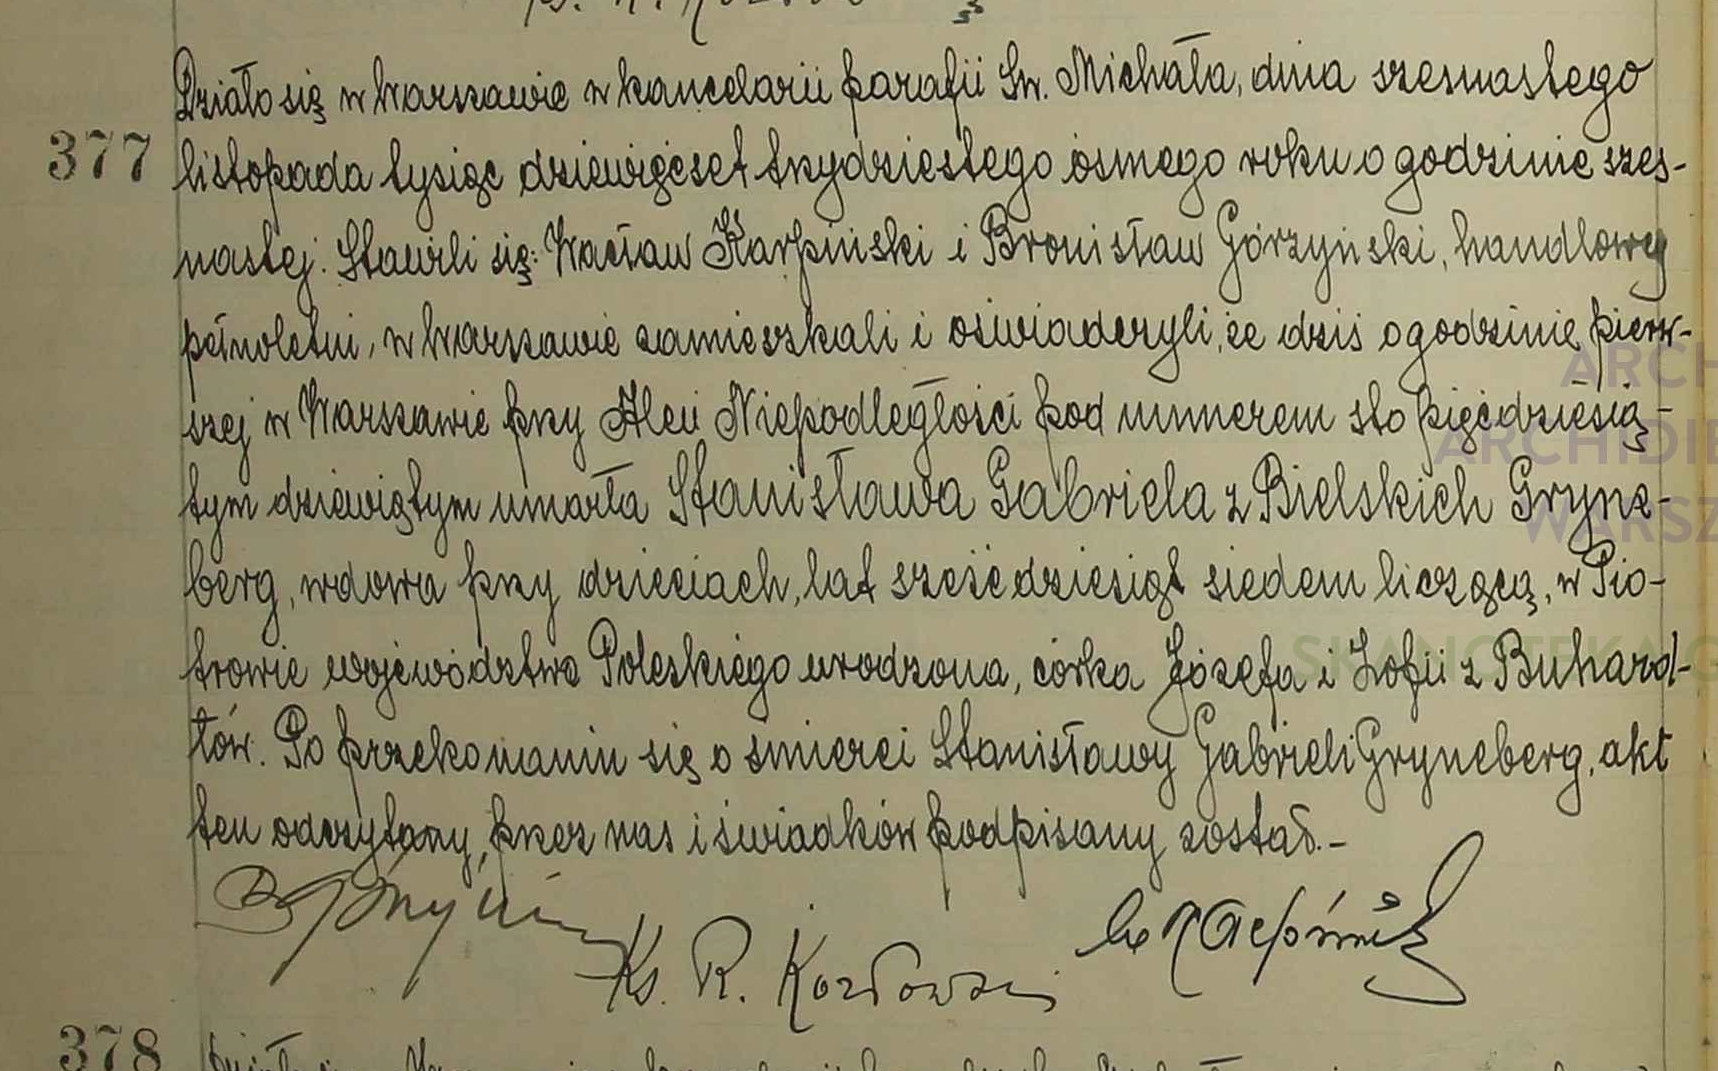 377
Działo się w Warszawie w kancelarii parafii Św. Michała, dnia szesnastego
listopada tysiąc dziewięćset trzydziestego ósmego roku o godzinie szes-
nastej. Stawili się: Wacław Karpiński i Bronisław Górzyński, handlowcy
pełnoletni, w Warszawie zamieszkali i oświadczyli, że dziś o godzinie pierw-
szej w Warszawie przy Alei Niepodległości pod numerem sto pięćdziesią-
tym dziewiątym umarła Stanisława Gabriela z Bielskich Gryne-
berg, wdowa przy dzieciach, lat sześćdziesiąt siedem licząca, w Pio-
trowie województwa Poleskiego urodzona, córka Józefa i Zofii z Buhard-
tów. Po przekonaniu się o śmierci Stanisławy Gabrieli Gryneberg, akt
ten odczytany, przez nas i świadków podpisany został.-
Ks. R. Kozłowski
378
ARCH
ARCHIDIE
WARSZ
SKANOTEKA G